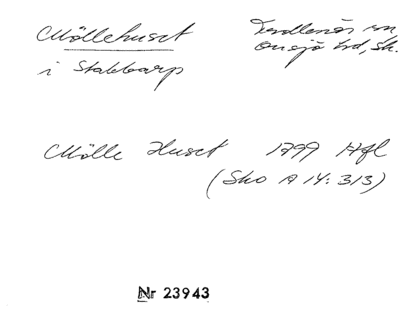 Möllehuset
i Stabbarp
Trollenäs sn
Onsjö hd, Sk.
Mölle Huset 1799 Hfl
(Sko A 14: 313)
Nr 23943